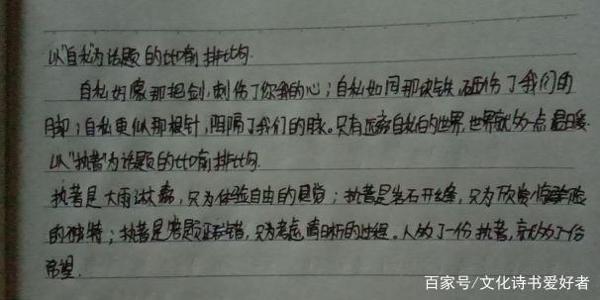 以“自私”为话题的比喻排比句.
自私好像那把剑,刺伤了你我的心;自私如同那块铁,砸伤了我们的
脚;自私更似那根针,阻隔了我们的脉。只有远离自私的世界,世界就多一点温暖.
以“执着”为话题的比喻排比句
执着是大雨淋漓,只为体验自由的感觉;执着是岩石开缝,只为欣赏
的独特;执着是考题正错,只为考虑的过程。人多了一份执着,就多了一份
希望.
百家号/文化诗书爱好者